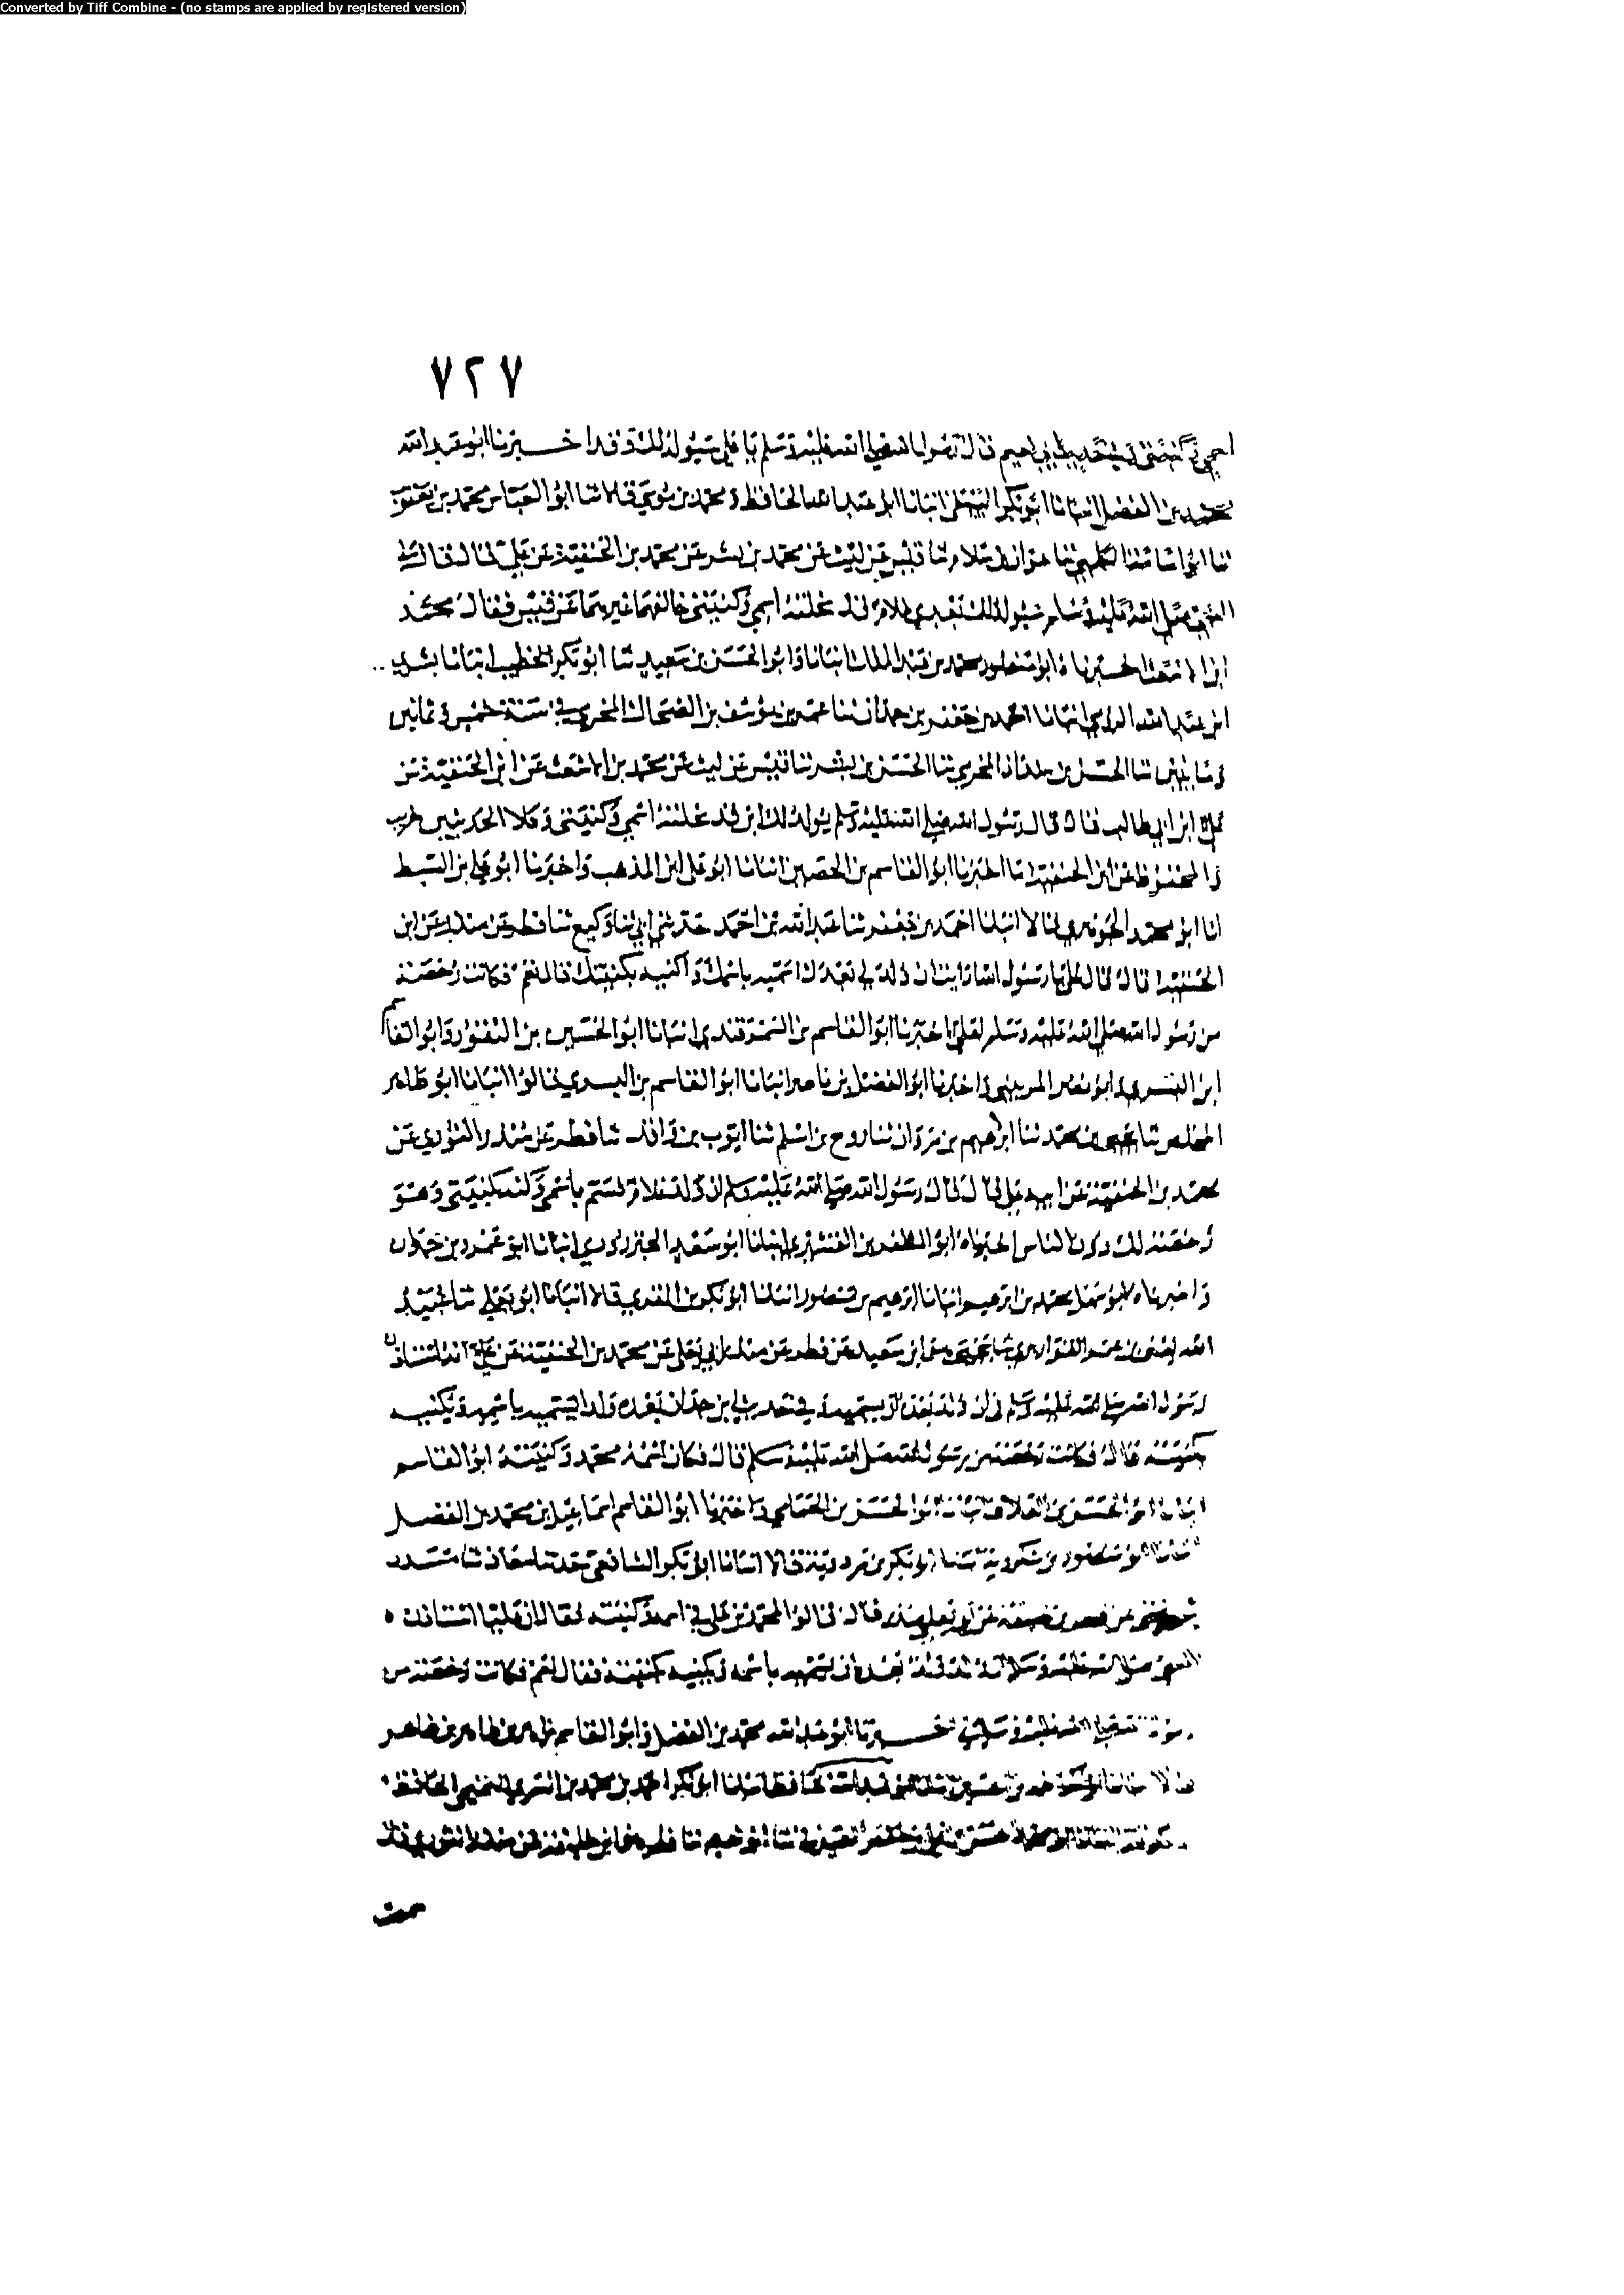 Converted by Tiff Combine - (no stamps are applied by registered version)
٧٢٧
قال رسول الله صلى الله عليه وسلم يا علي سيولد لك وقد اخبرنا ابو عبد الله
محمد بن الفضل انبانا ابو بكر البيهقي انبانا ابو عبد الله الحافظ ومحمد بن موسى قالا ثنا ابو العباس محمد بن يعقوب
ثنا ابو اسامة الكلبي ثنا عون بن سلام ثنا قيس عن ليث عن محمد بن بشر عن محمد بن الحنفية عن علي قال قال
صلى الله عليه وسلم سيولد لك بعدي غلام قد نحلته اسمي وكنيتي خالفهما غيرهما عن قيس فقال محمد
ابن الاشعث اخبرنا ابو منصور محمد بن عبد الملك انبانا وابو الحسن بن سعيد ثنا ابو بكر الخطيب انبانا بشرى
ابن عبد الله الرومي انبانا احمد بن جعفر بن حمدان ثنا عمر بن يوسف بن الضحاك المخرمي في سنة خمس وثمانين
ومايتين ثنا الحسن بن المخرمي ثنا الحسن بن بشر ثنا قيس عن ليث عن محمد بن الاشعث عن ابن الحنفية عن
علي ابن ابي طالب قال قال رسول الله صلى الله عليه وسلم يولد لك ابن قد نحلته اسمي وكنيتي وكلا الحديثين غريب
والمحفوظ عن ابن الحنفية ما اخبرنا ابو القاسم بن الحصين انبانا ابو علي ابن المذهب واخبرنا ابو علي بن السبط
انا ابو محمد الجوهري قالا انبانا احمد بن جعفر ثنا عبد الله بن احمد حدثني ابي ثنا وكيع ثنا فطر عن منذر عن ابن
الحنفية قال قال علي يا رسول الله ارايت ان ولد لي بعدك اسميه باسمك واكنيه بكنيتك قال نعم فكانت رخصة
من رسول الله صلى الله عليه وسلم لعلي اخبرنا ابو القاسم بن السمرقندي انبانا ابو الحسين بن النقور وابو القاسم
ابن البسري وابو نصر الزينبي واخبرنا ابو الفضل بن ناصر انبانا ابو القاسم بن البسري قالوا انبانا ابو طاهر
المخلص ثنا يحيى بن محمد ثنا ابرهيم بن مروان ثنا روح بن اسلم ثنا ايوب بن واقد ثنا فطر عن منذر الثوري عن
محمد بن الحنفية عن ابيه علي قال قال رسول الله صلى الله عليه وسلم ان ولد لك غلام فسمه باسمي وكنه بكنيتي وهو
رخصة لك دون الناس اخبرناه ابو المظفر بن القشيري انبانا ابو سعد الجنزرودي انبانا ابو عمرو بن حمدان
واخبرناه ابو سهل محمد بن ابرهيم انبانا ابرهيم بن منصور انبانا ابو بكر بن المقري قالا انبانا ابو يعلى ثنا عبيد
الله بن عمر القواريري ثنا يحيى بن سعيد عن فطر عن منذر ابي يعلى عن محمد بن الحنفية عن علي انه استاذن
رسول الله صلى الله عليه وسلم في ان ولد بعده ان يسميه وفي حديث ابن حمدان بعده ولد ايسميه باسمه ويكنيه
بكنيته قال فكانت رخصة من رسول الله صلى الله عليه وسلم قال فكان اسمه محمد وكنيته ابو القاسم
انبانا ابو الحسن بن العلاف انبانا ابو الحسن بن الحمامي واخبرنا ابو القاسم اسماعيل بن محمد بن الفضل
انبانا ابو منصور بن شكرويه ثنا ابو بكر بن مردويه قالا انبانا ابو بكر الشافعي حدثنا معاذ ثنا مسدد
قال قالوا لمحمد بن علي في اسمه وكنيته فقال ان عليا استاذن
النبي صلى الله عليه وسلم ان ولد بعده ان يسميه باسمه ويكنيه بكنيته فقال نعم فكانت رخصة من
اخبرنا ابو عبد الله محمد بن الفضل وابو القاسم زاهر بن طاهر
قالا ابو بكر احمد بن محمد بن السري التميمي الحافظ
ثنا ابو نعيم ثنا فطر بن خليفة عن منذر الثوري قال
سمعت